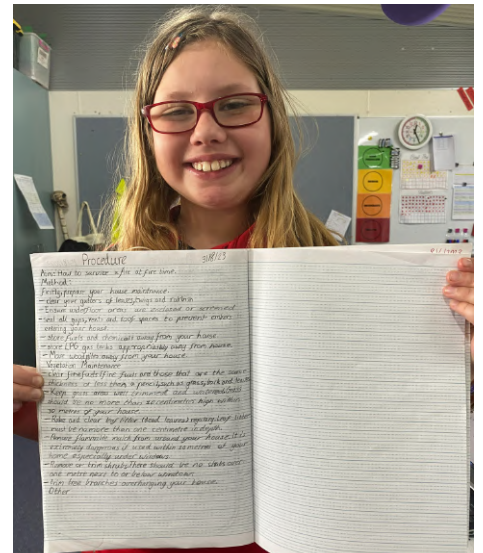 Procedure 31/8/23
Aim: How to survive a fire at fire time.
Method:
Firstly, prepare your house maintnance.
- clear your gutters of leaves, twigs and rubbish
- Ensure underfloor areas are enclosed or screened
- Seal all gaps, vents and roof spaces to prevent embers
entering your house.
- store fuels and chemicals away from your house
- more LPG gas tanks appropriately away from house.
- Move woodpiles away from your house.
Vegetation Maintenance
- clear fine fuels (fine fuels are those that are the same
thickness or less than a pencil, such as grass, bark and leaves
- Keep grass areas well trimmed and watered. Grass
should be no more than 10 centimetres high within
30 metres of your house.
- Rake and clear leaf litter regularly. Leaf litter
must be no more than one centimetre in depth.
- Remove flammable mulch from around your house. It is
extremely dangerous if used within 10 metres of your
home especially under windows.
- Remove or trim shrubs. There should be no shrubs over
one metre next to or below windows.
- trim tree branches overhanging your house.
Other